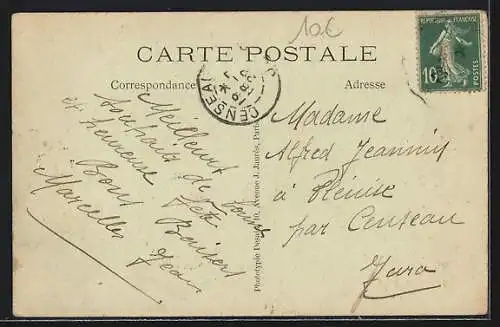 10€
CARTE POSTALE
Correspondance
Adresse
RÉPUBLIQUE FRANÇAISE
10c
POSTES
CENSEAU
Meilleurs
souhaits de bonne
et heureuse fête
Bons Baisers
Marcelles Jean
Phototypie Desaix, 10, Avenue J. Jaurès, Paris
Madame
Alfred Jeannin
à Plénise
par Censeau
Jura